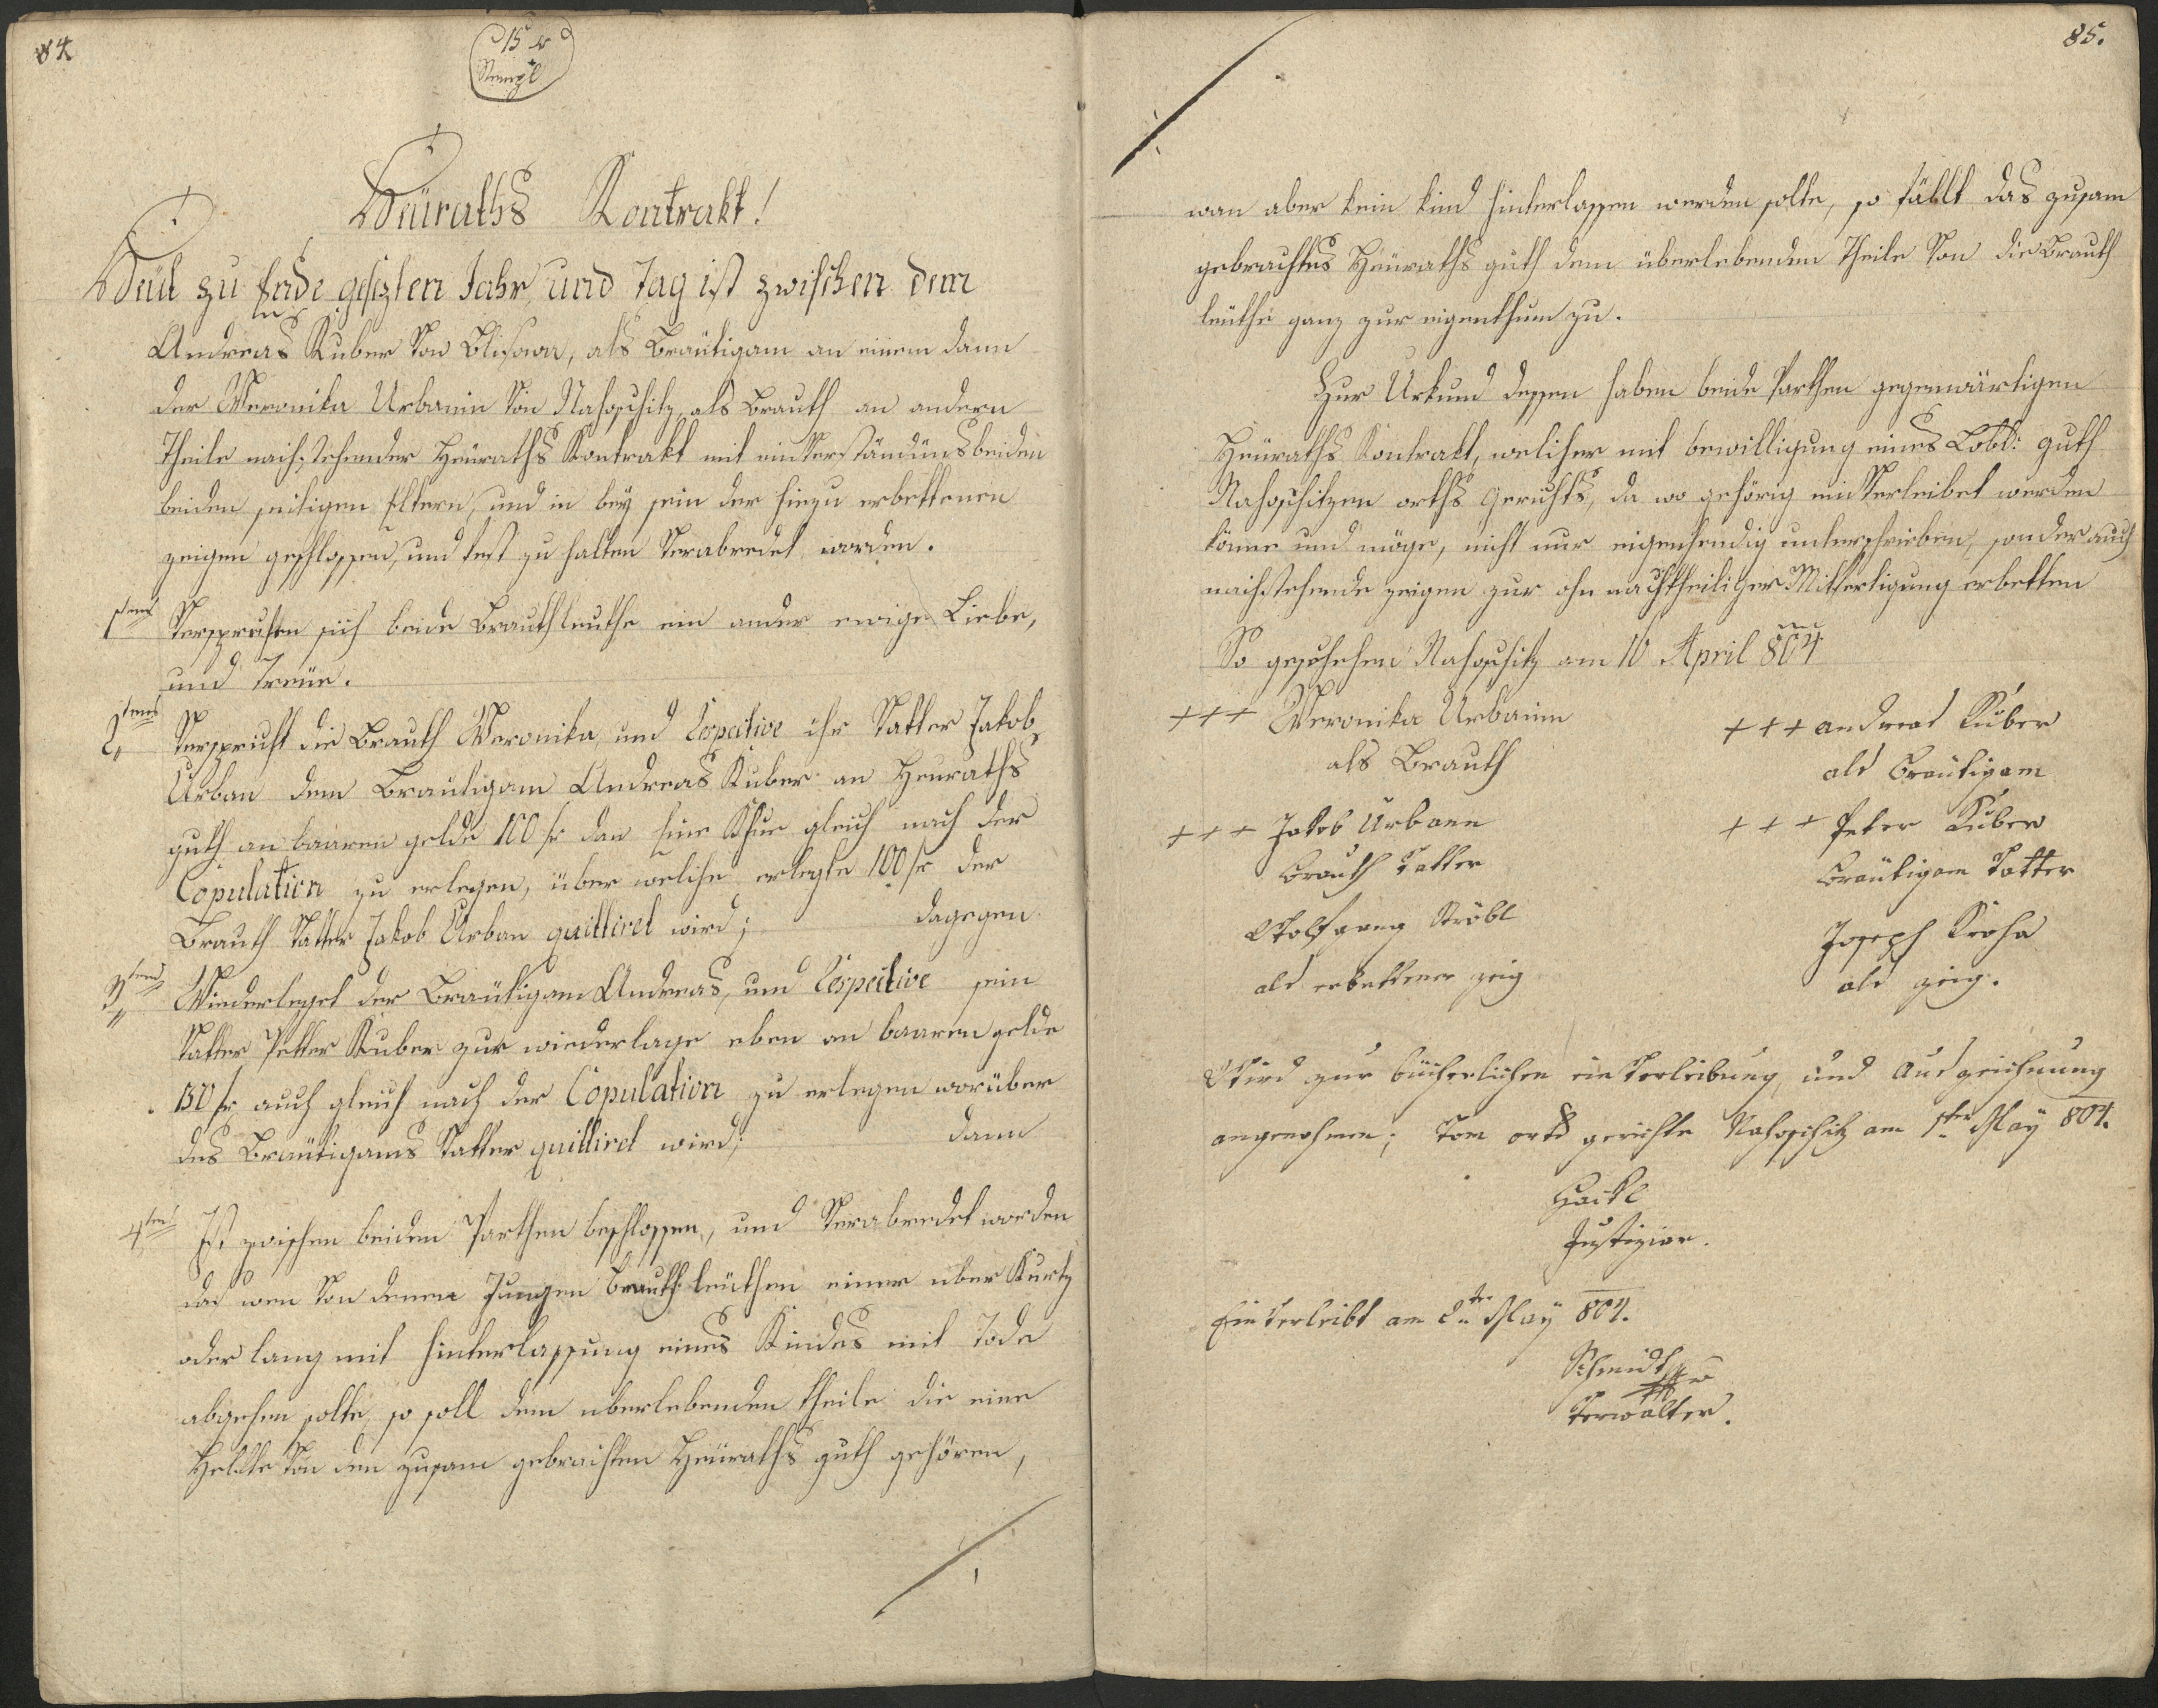 84
15 x
Stempl
Heüraths Kontrakt!
Heüt zu Ende gesezten Jahr und Tag ist zwischen dem
Andreas Kuber von Blisowa, als Bräutigam an einem dann
der Weronika Urbanin von Nahoschitz, als Brauth an andern
Theile nachstehender Heüraths Kontrakt mit einverständüns beiden
beiden seitigen Eltern, und in bey sein der hiezu erbettenen
zeigen geschlossen, und fest zu halten verabredet worden.
1tens Versprechen sich beide Brauthleuthe ein ander ewige Liebe,
und Treüe.
2tens Verspricht die Brauth Weronika, und Respective ihr Vatter Jakob
Urban dem Bräutigam Andreas Kuber an Heuraths
guth an baaren gelde 100 fr dan Eine Khue gleich nach der
Copulation zu erlegen, über welche erlegte 100 fr der
Brauth Vatter Jakob Urban quittiret wird; dagegen
3tens Wiederleget der Bräutigam Andreas, und Respective sein
Vatter Petter Kuber zur wiederlage eben an baaren gelde
150 fr auch gleich nach der Copulation zu erlegen worüber
des Bräutigams Vatter quittiret wird; dann
4tens Ist zwischen beiden Parthen beschlossen, und verabredet worden
das wen von denen Jungen Brauthleüthen einer uber Kurtz
oder lang mit hinterlassung eines Kindes mit Tode
abgehen solte, so soll dem uberlebenden theile die eine
Helfte von den zusam gebrachten Heüraths guth gehören,
85.
wan aber kein kind hinterlassen werden solte, so fällt das zusam
gebrachtes Heüraths guth dem überlebenden Theile von die Brauth
leüthe ganz zur eigenthum zu.
Zur Urkund dessen haben beide Parthen gegenwärtigen
Heüraths Kontrakt, welcher mit bewilligung eines Lobl: guth
Nahoschitzen orths Gerichts, da wo gehörig einverleibet werden
könne und möge, nicht nur eigenhendig unterschrieben, sonder auch
nachstehende zeigen zur ohn nachtheiliger Mitfertigung erbetten
So geschehen Nahoschitz am 16 April 804
+++ Weronika Urbanin
als Brauth
+++ andreas Kuber
als Bräutigam
+++ Jakob Urbann
Brauth Vatter
+++ Peter Kuber
Bräutigam Vatter
Wolfgang Ströbl
als erbettener zeig
Joseph Kroha
als zeig.
Wird zur bücherlichen einverleibung, und Auszeichnung
angenohmen; Vom orts gerichte Nahoschitz am 1ten May 804.
Hackl
Justiziar.
Einverleibt am 2ten May 804.
Schmidt
Verwalter.